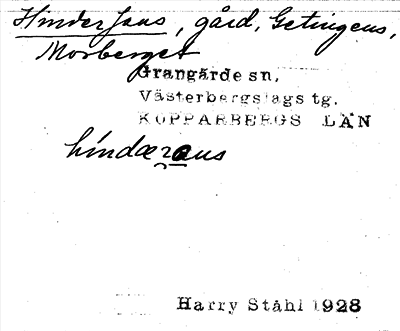 Hinders Jans, gård, Getingens,
Morberget
Grangärde sn,
Västerbergslags tg.
KOPPARBERGS LÄN
híndærans
Harry Ståhl 1928